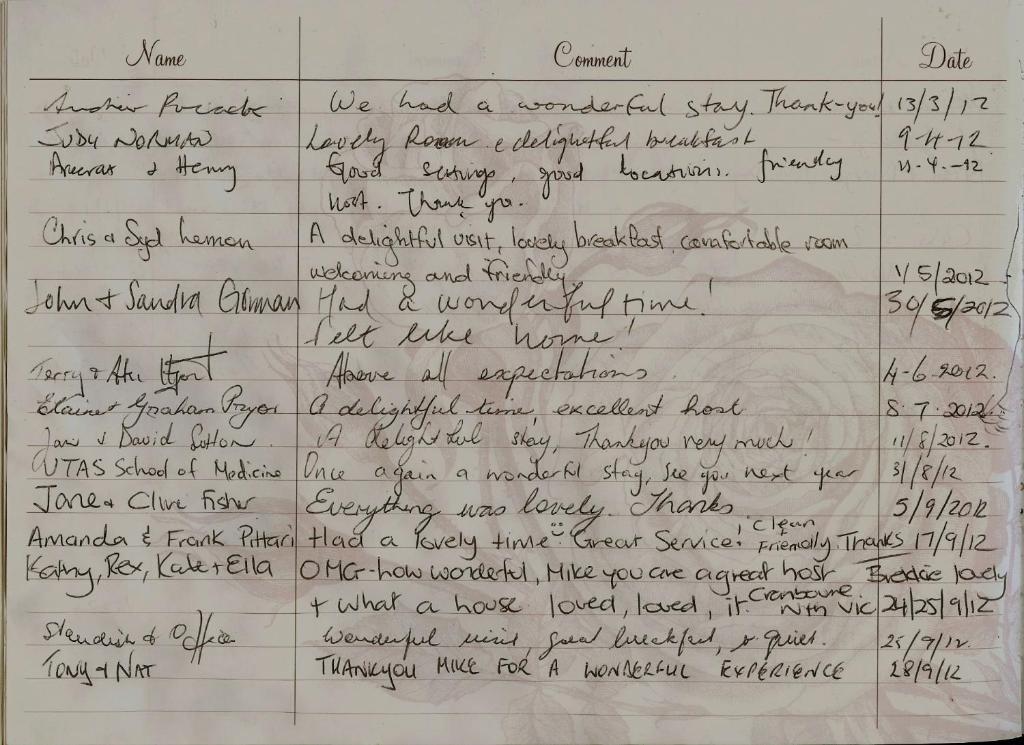 Name Comment Date
We had a wonderful stay. Thank-you! 13/3/12
JUDY NORMAN Lovely Room & delightful breakfast 9-4-12
& Henry Good settings, good locations. friendly 11-4-12
host. Thank you.
Chris & Syd Lemon A delightful visit, lovely breakfast comfortable room
welcoming and friendly 1/5/2012
John + Sandra Gorman Had a wonderful time! 30/5/2012
Felt like home!
Terry & Above all expectations 4-6-2012.
Elaine & Graham Pryor A delightful time, excellent host 8.7.2012
Jan & David Sutton. A delightful stay, Thankyou very much! 11/8/2012.
UTAS School of Medicine Once again a wonderful stay, See you next year 31/8/12
Jane & Clive Fisher Everything was lovely. Thanks 5/9/2012
Amanda & Frank Pittari Had a lovely time. Great Service, Clean, Friendly. Thanks 17/9/12
Kathy, Rex, Kate + Ella OMG-how wonderful, Mike you are a great host Breckie lovely
+ what a house loved, loved, it. Cranbourne Nth Vic 24/25/9/12
Wonderful visit, great breakfast, & quiet. 25/9/12.
TONY & NAT THANKYOU MIKE FOR A WONDERFUL EXPERIENCE 28/9/12